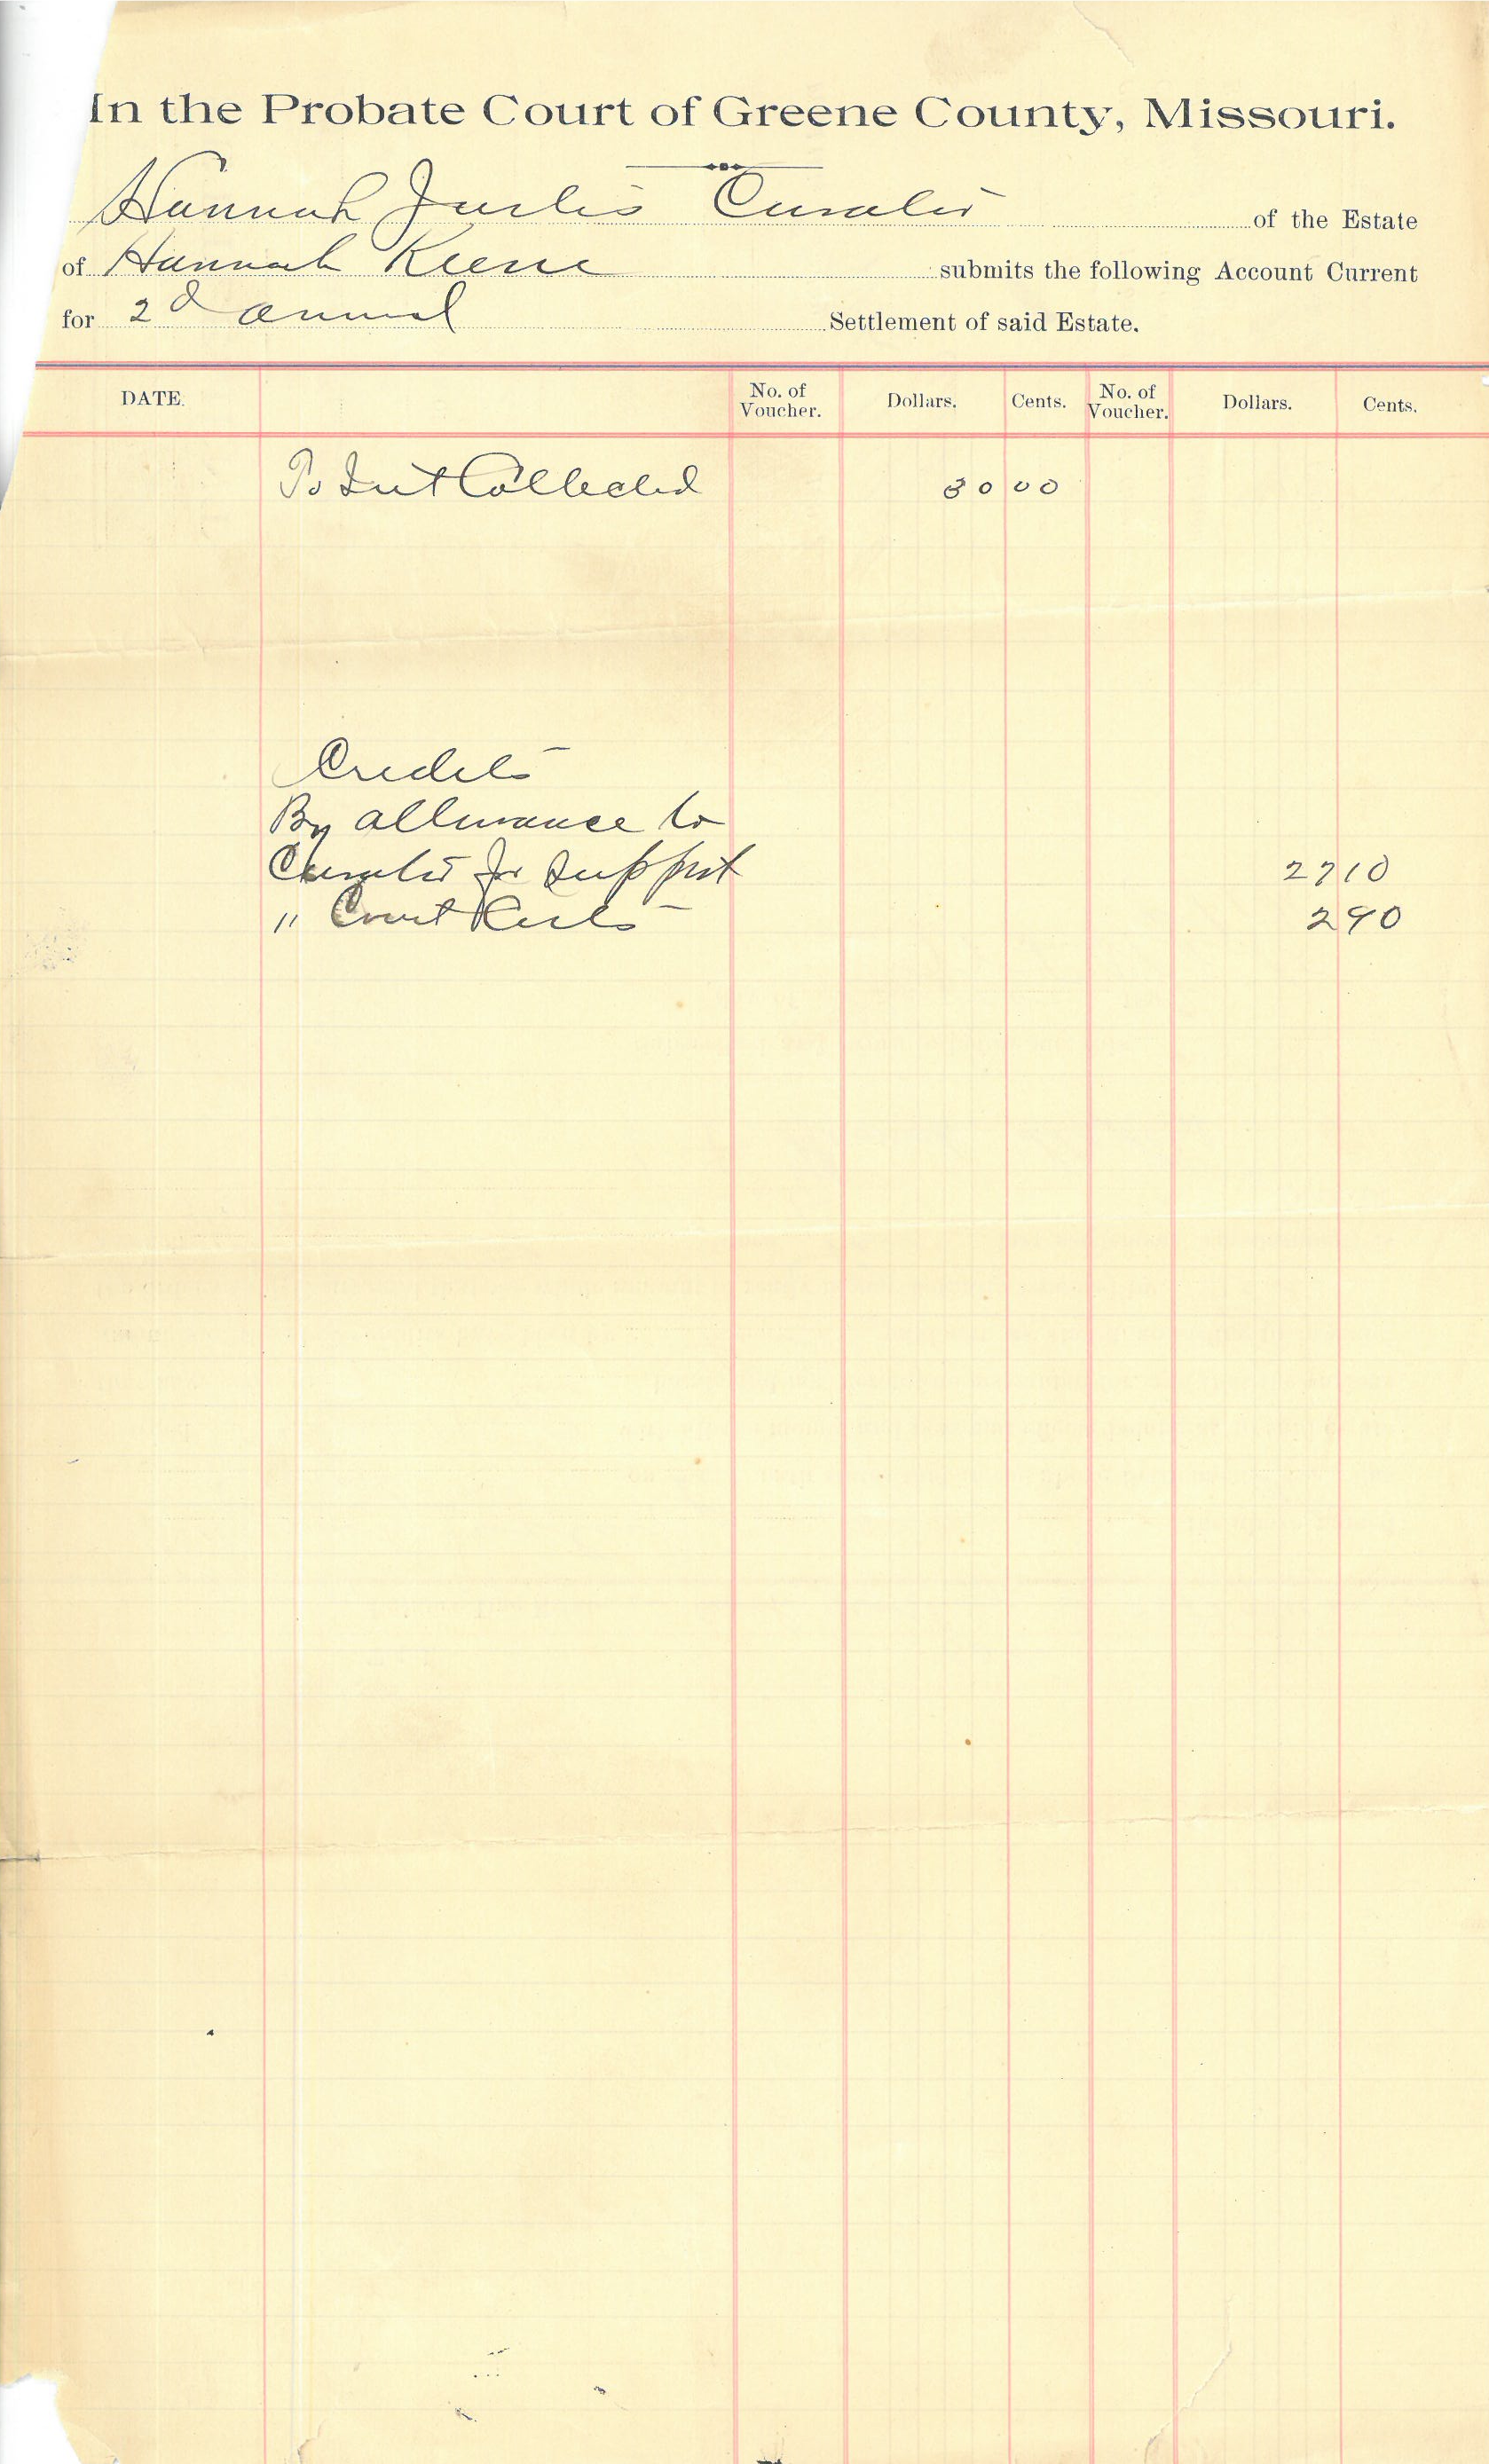 In the Probate Court of Greene County, Missouri.
Hannah Curator of the Estate
of Hannah Keene submits the following Account Current
for 2d annual Settlement of said Estate.
DATE. No. of Voucher. Dollars. Cents. No. of Voucher. Dollars. Cents.
To Int Collected 30 00
Credits
By allowance to
Curator for support 27 10
" Court Costs 2 90